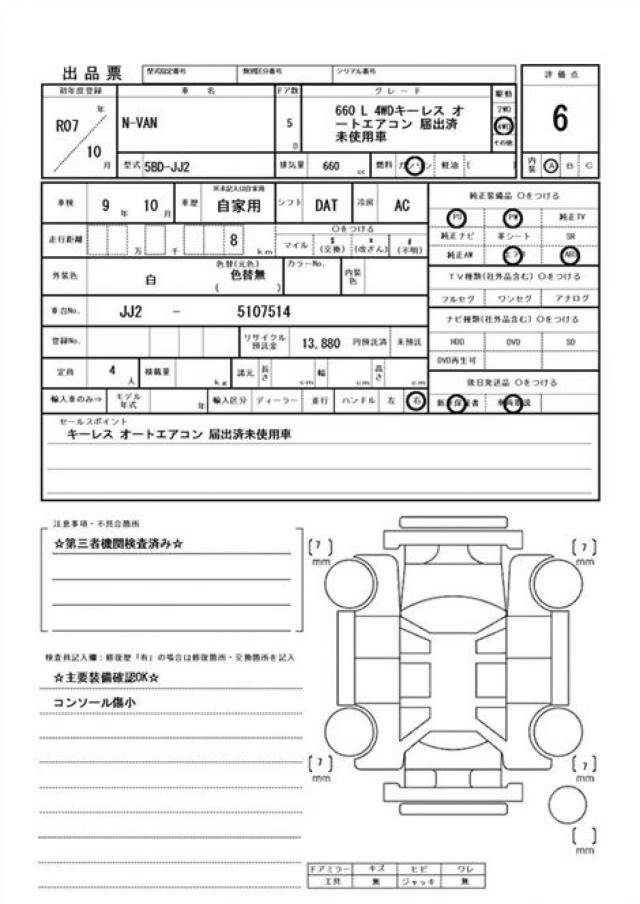 出品票 型式指定番号 類別区分番号 シリアル番号
評価点
初年度登録 車名 ドア数 グレード 駆動
R07 年 10 月
N-VAN
5 D
660 L 4WDキーレス オ
ートエアコン 届出済
未使用車
2WD
4WD
その他
6
型式 5BD-JJ2 排気量 660 cc 燃料 ガソリン 軽油 ( )
内装 A B C
車検 9 年 10 月 車歴 ※未記入は自家用 自家用 シフト DAT 冷房 AC
純正装備品 ○をつける
PS PW 純正TV
純正ナビ 革シート SR
純正AW エアB ABS
走行距離 万 千 8 km
○をつける
マイル $ (交換) * (改ざん) # (不明)
外装色 白 色替(元色) 色替無 ( ) カラーNo. 内装色
TV種類(社外品含む) ○をつける
フルセグ ワンセグ アナログ
車台No. JJ2 - 5107514
ナビ種類(社外品含む) ○をつける
HDD DVD SD
DVD再生可
登録No. リサイクル預託金 13,880 円預託済 未預託
定員 4 人 積載量 kg 諸元 長さ cm 幅 cm 高さ cm
後日発送品 ○をつける
輸入車のみ⇒ モデル年式 年 輸入区分 ディーラー 並行 ハンドル 左 右
セールスポイント
キーレス オートエアコン 届出済未使用車
注意事項・不具合箇所
☆第三者機関検査済み☆
検査員記入欄：修復歴「有」の場合は修復箇所・交換箇所を記入
☆主要装備確認OK☆
コンソール傷小
[7] mm
[7] mm
[7] mm
[7] mm
[ ] mm
ドアミラー キズ ヒビ ワレ
工具 無 ジャッキ 無